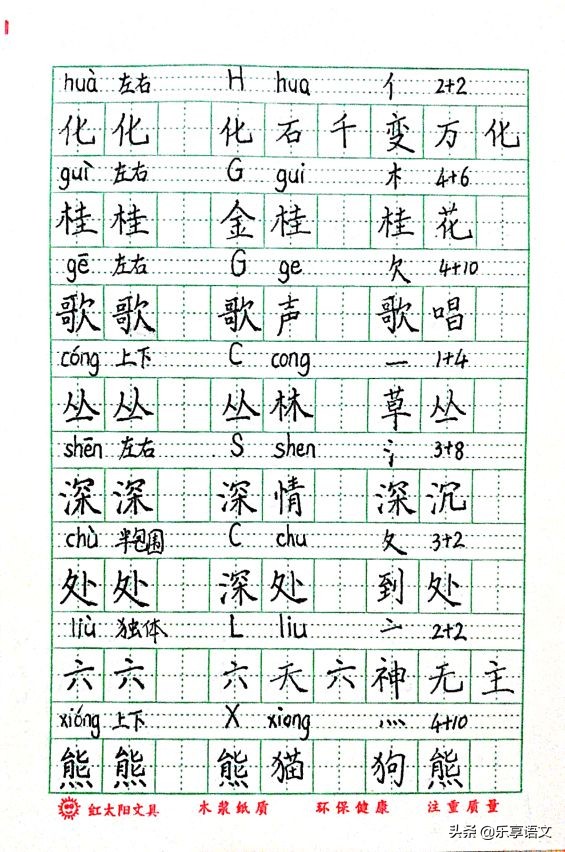 huà 左右 H hua 亻 2+2
化 化 化 石 千 变 万 化
guì 左右 G gui 木 4+6
桂 桂 金 桂 桂 花
gē 左右 G ge 欠 4+10
歌 歌 歌 声 歌 唱
cóng 上下 C cong 一 1+4
丛 丛 丛 林 草 丛
shēn 左右 S shen 氵 3+8
深 深 深 情 深 沉
chù 半包围 C chu 夂 3+2
处 处 深 处 到 处
liù 独体 L liu 亠 2+2
六 六 六 天 六 神 无 主
xióng 上下 X xiong 灬 4+10
熊 熊 熊 猫 狗 熊
红太阳文具 木浆纸质 环保健康 注重质量
头条 @乐享语文